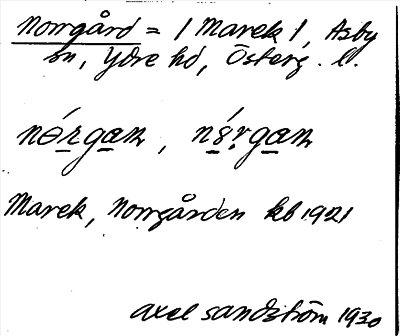 Norrgård = / Marek /, Asby
sn, Ydre hd, Österg. l.
nǿrgan, nǿrgan
Marek, Norrgården kb 1921
Axel Sandström 1930